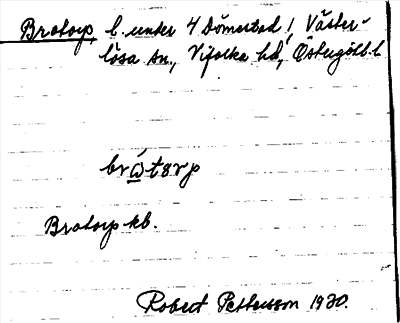 Brotorp, b. under 4 Dömestad i Väster-
lösa sn., Vifolka hd, Östergötl. l.
brωtorp
Brotorp kb.
Robert Pettersson 1930.